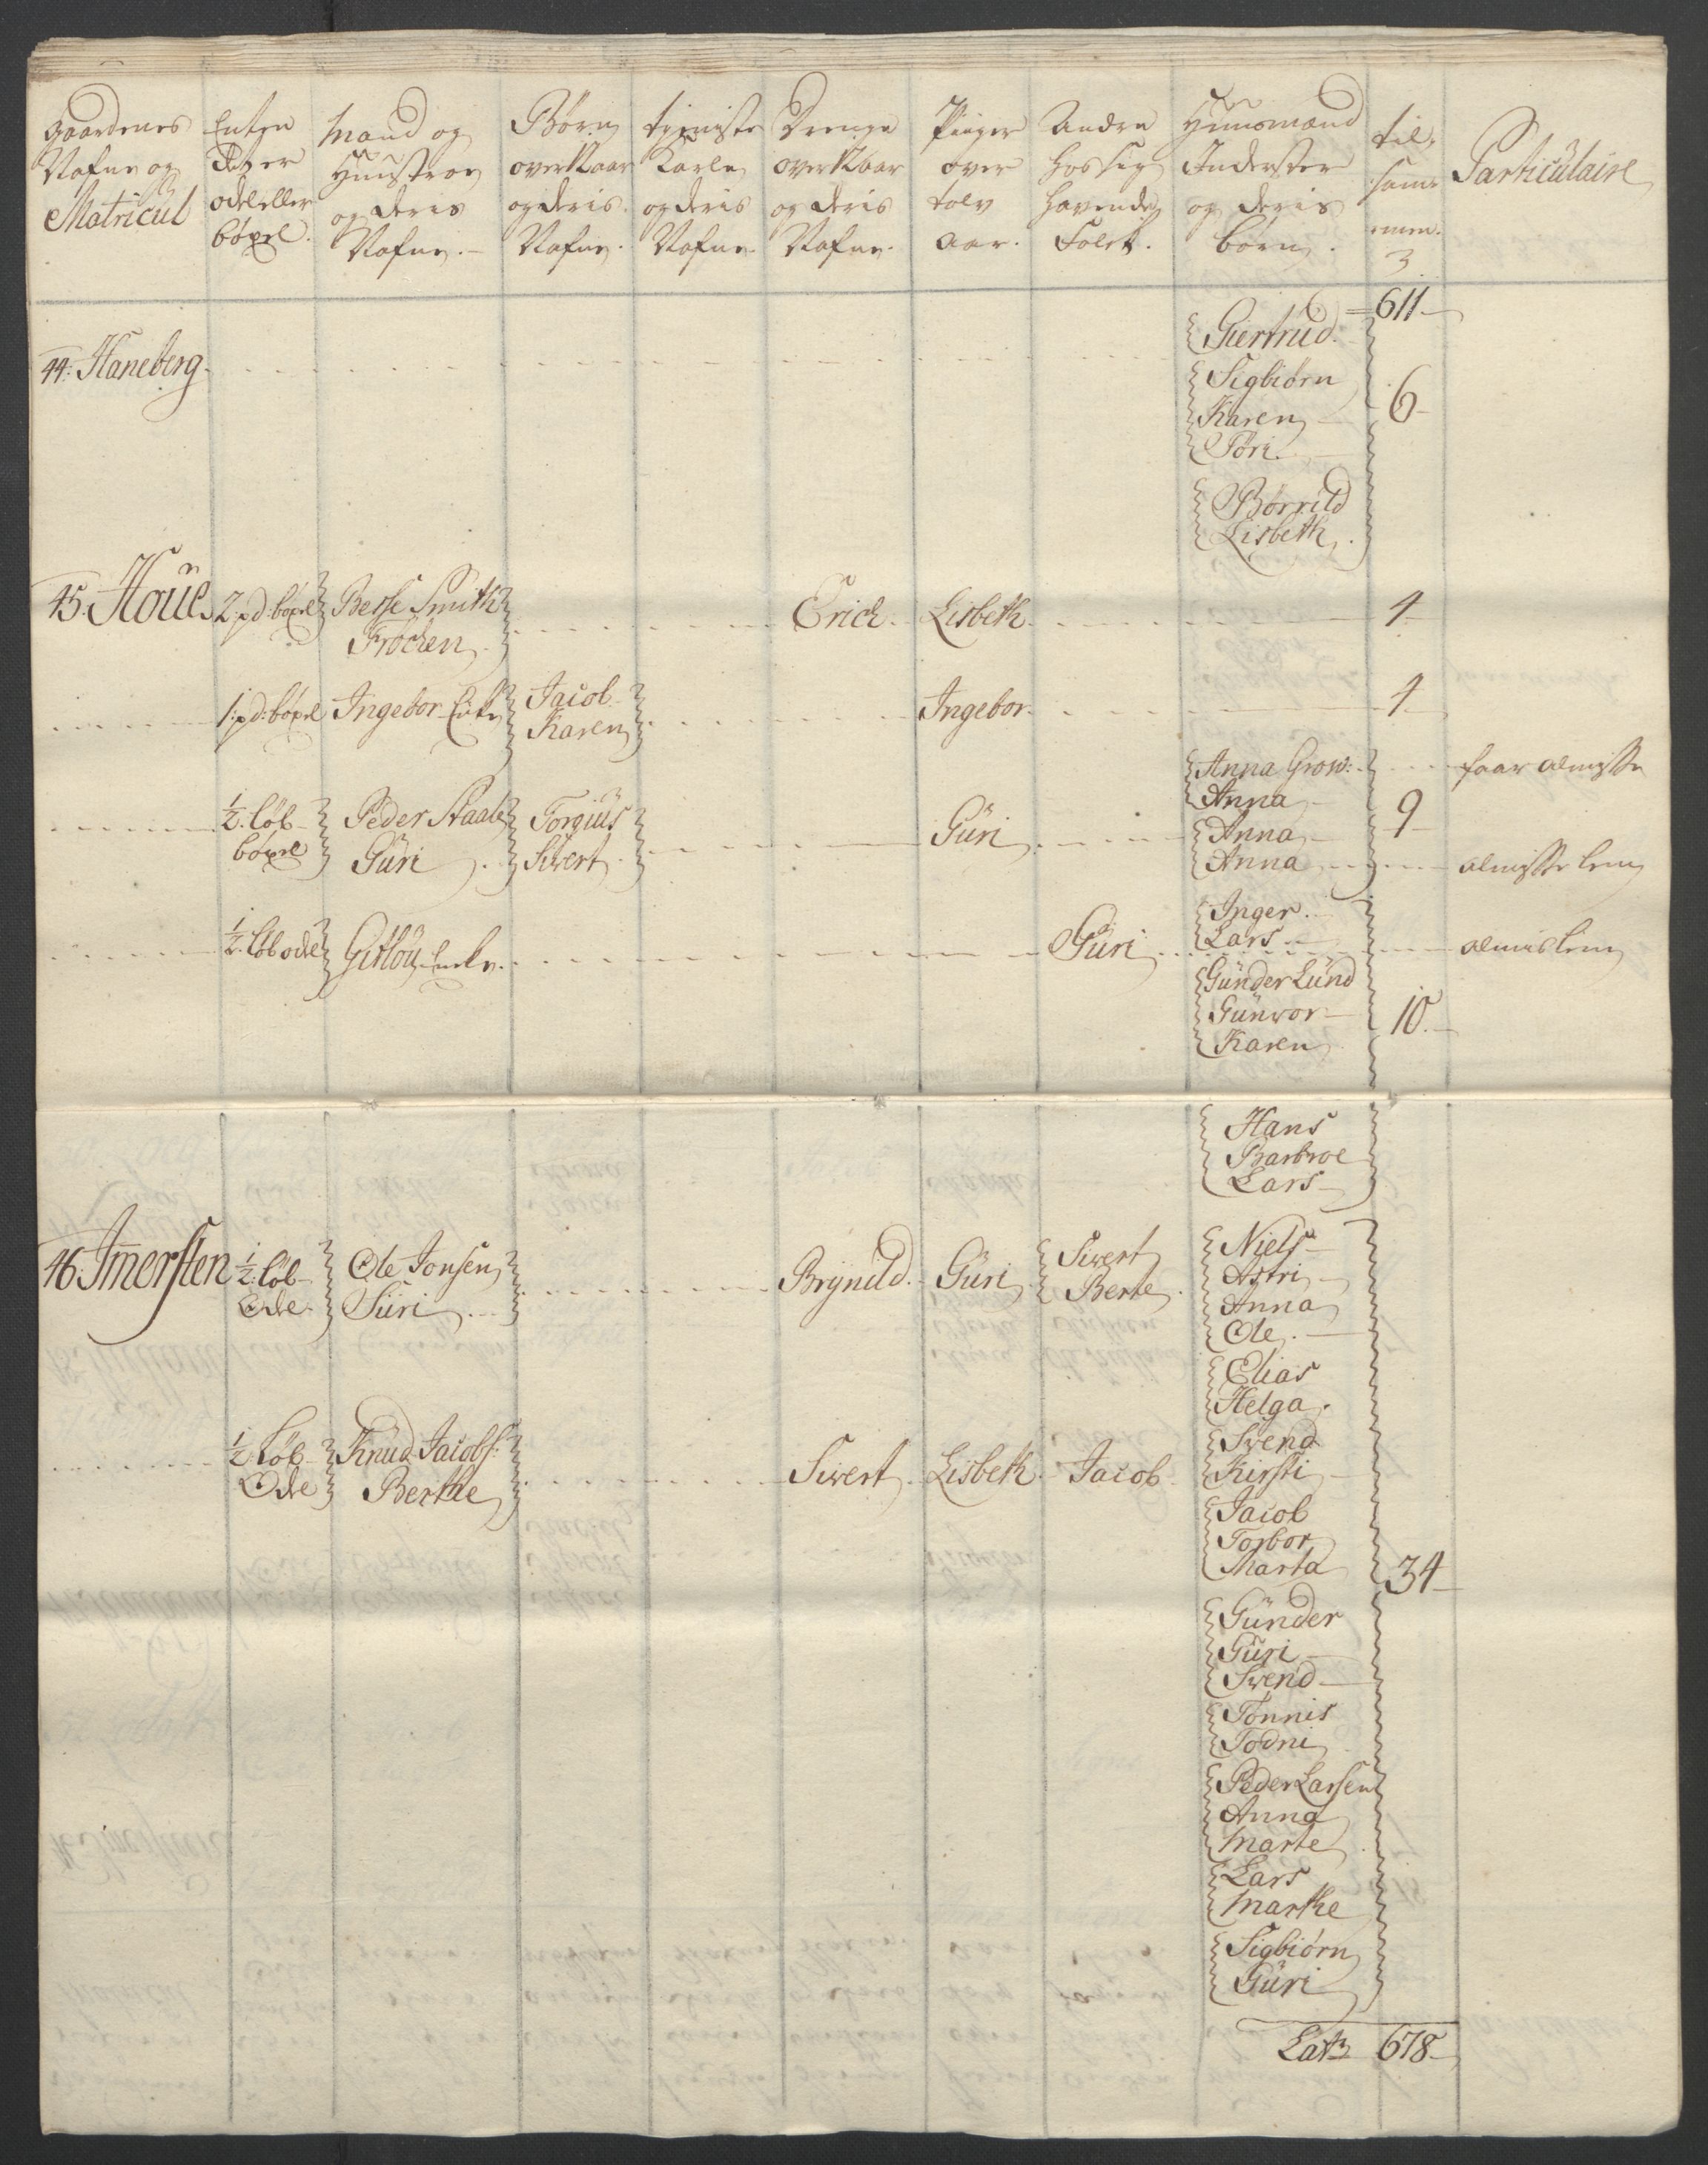 Gaardenes
Nafne og
Matricul
Enten
det er
odel eller
böxel.
Mand og
Huustroe
og deris
Nafne.
Börn
over 12 aar
og deris
Nafne.
tieniste
Karle
og deris
Nafne.
Drenge
over 12 aar
og deris
Nafne.
Piiger
over
tolv
aar.
Andre
hos sig
havende
Folck.
Huusmænd
Inderster
og deris
börn.
til,
samm
emen.
3
Particülaire
611
44: Haneberg
Giertrud.
Sigbiørn
Karen
Töri.
6
Börrild
Lisbeth.
45. Houe
2: pd: böxel
Besse Smith
Fröchen
Erich
Lisbeth
4
1: pd: böxel
Ingebor Enke
Jacob
Karen
Ingebor
4
½. löb
böxel
Peder Staale
Güri
Torgiüs
Siwert
Güri
Anna Grow:
Anna
Anna
Anna
9
faar almisse
almisse lem
½. löb odel
Gitlöü Enke.
Güri
Inger.
Lars
Günder Lünd
Günvor
Karen
10.
almis lem
Hans
Barbroe
Lars
46. Imersten
½. löb
Ode
Ole Jonsen
Siri
Brÿnild.
Güri
Siwert
Berte
Niels
Astri
Anna
Ole.
Elias
Helga.
½. Löb
Ode
Knüd Jacobs:
Berthe
Siwert
Lisbeth
Jacob
Svend
Kirsti
Jacob
Torbor
Marta
34
Günder
Güri
Svend
Tönnis
Todni
Peder Larsen
Anna
Marte
Lars
Marthe
Sigbiörn
Güri
Lat3 678